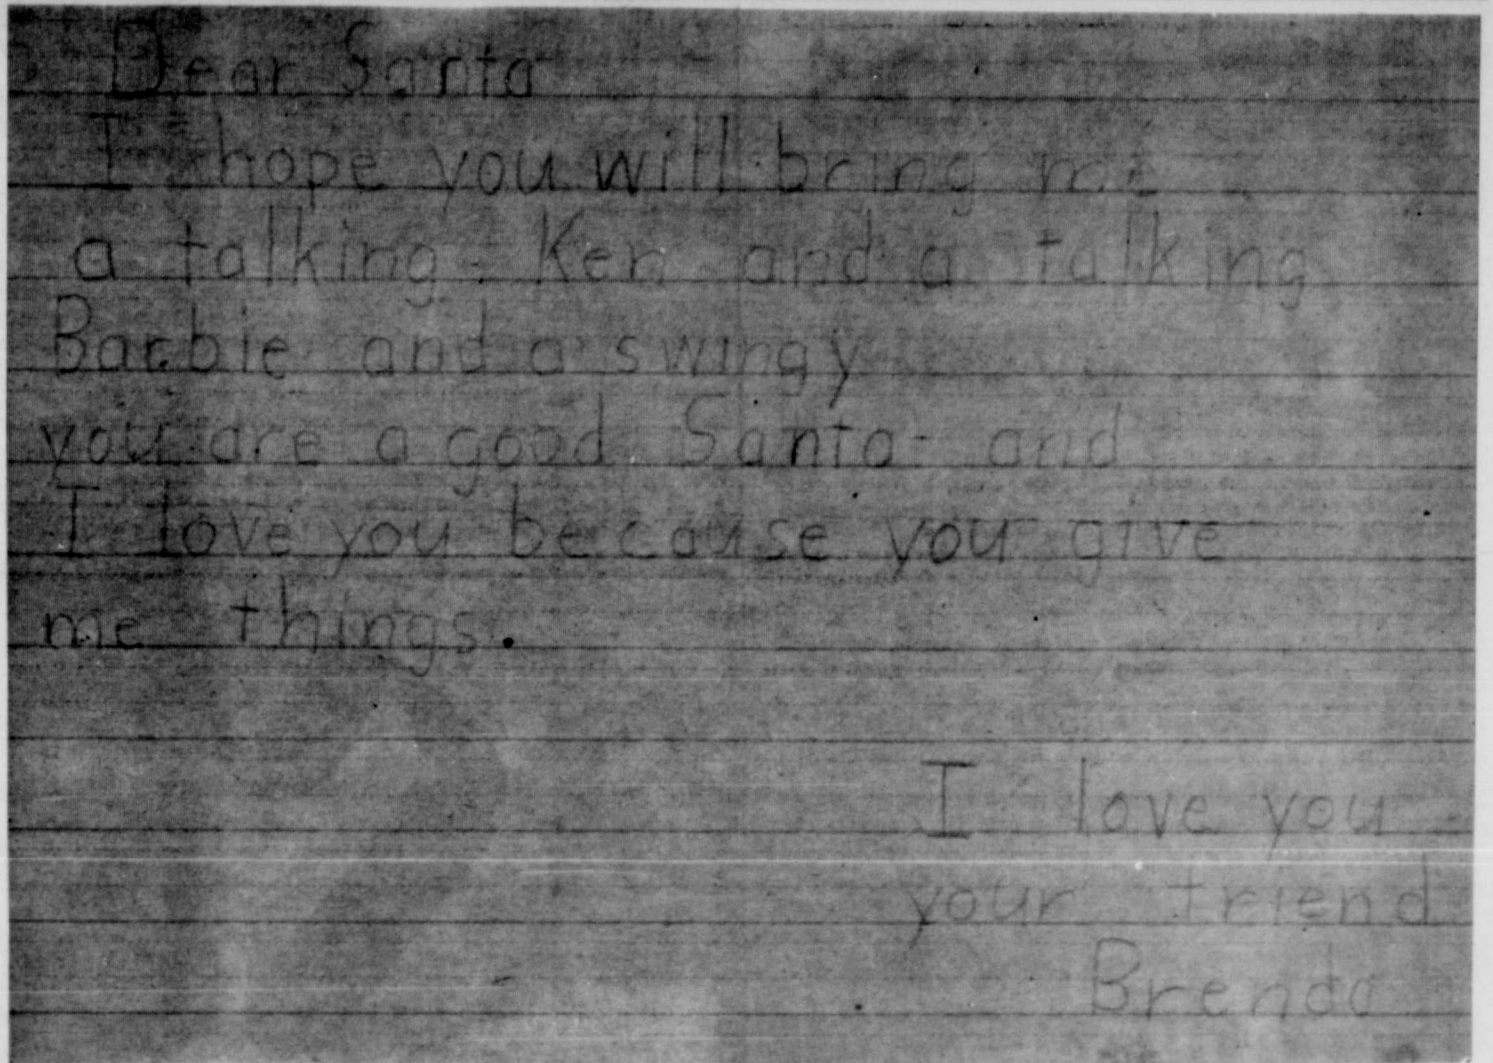 Dear Santa
I hope you will bring me
a talking Ken and a talking
Barbie and a swingy
you are a good Santa and
I love you because you give
me things.
I love you
your friend
Brenda